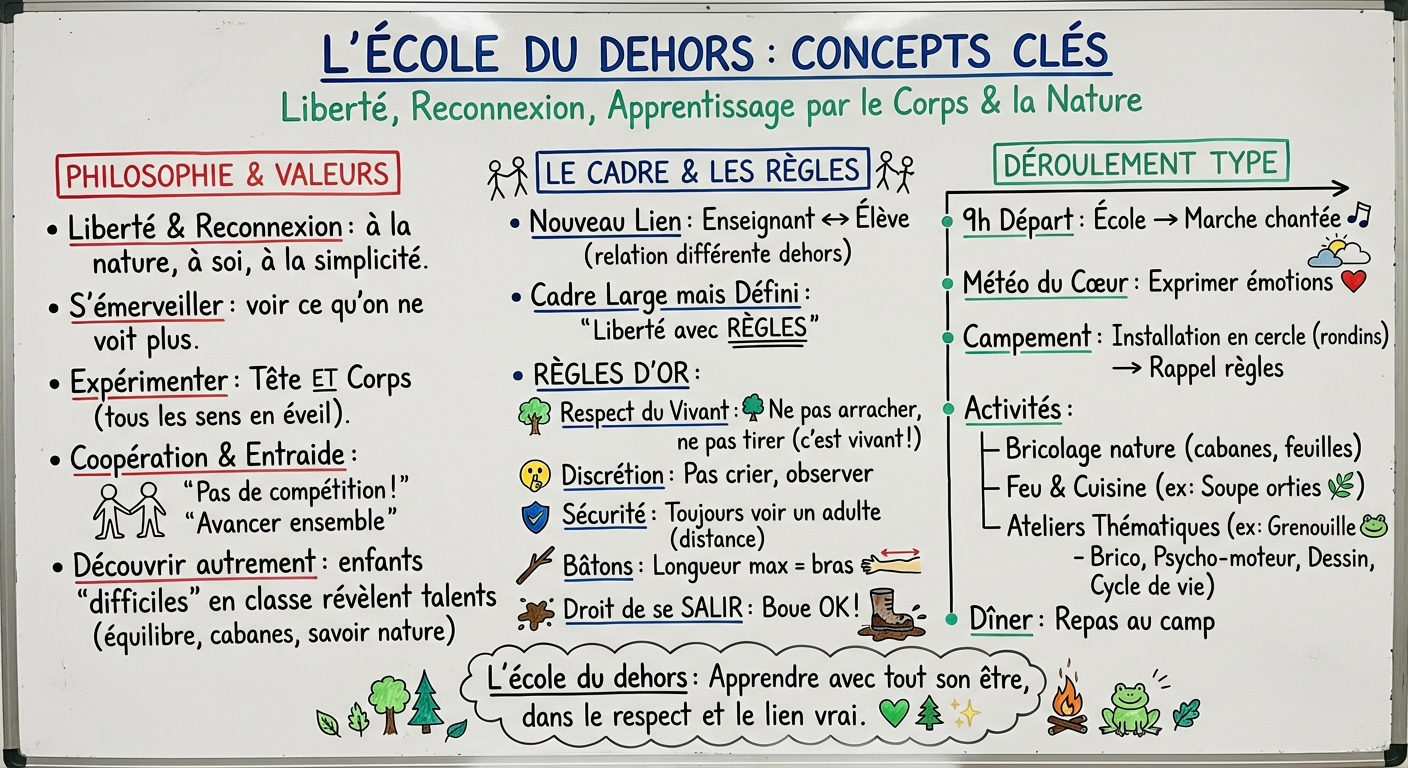 L'ÉCOLE DU DEHORS : CONCEPTS CLÉS
Liberté, Reconnexion, Apprentissage par le Corps & la Nature
PHILOSOPHIE & VALEURS
• Liberté & Reconnexion : à la
nature, à soi, à la simplicité.
• S'émerveiller : voir ce qu'on ne
voit plus.
• Expérimenter : Tête ET Corps
(tous les sens en éveil).
• Coopération & Entraide :
"Pas de compétition!"
"Avancer ensemble"
• Découvrir autrement : enfants
"difficiles" en classe révèlent talents
(équilibre, cabanes, savoir nature)
LE CADRE & LES RÈGLES
• Nouveau Lien : Enseignant ↔ Élève
(relation différente dehors)
• Cadre Large mais Défini :
"Liberté avec RÈGLES"
• RÈGLES D'OR :
Respect du Vivant : Ne pas arracher,
ne pas tirer (c'est vivant!)
Discrétion : Pas crier, observer
Sécurité : Toujours voir un adulte
(distance)
Bâtons : Longueur max = bras
Droit de se SALIR : Boue OK!
DÉROULEMENT TYPE
9h Départ : École → Marche chantée
Météo du Cœur : Exprimer émotions
Campement : Installation en cercle (rondins)
→ Rappel règles
Activités :
Bricolage nature (cabanes, feuilles)
Feu & Cuisine (ex: Soupe orties )
Ateliers Thématiques (ex: Grenouille
- Brico, Psycho-moteur, Dessin,
Cycle de vie)
Dîner : Repas au camp
L'école du dehors : Apprendre avec tout son être,
dans le respect et le lien vrai.